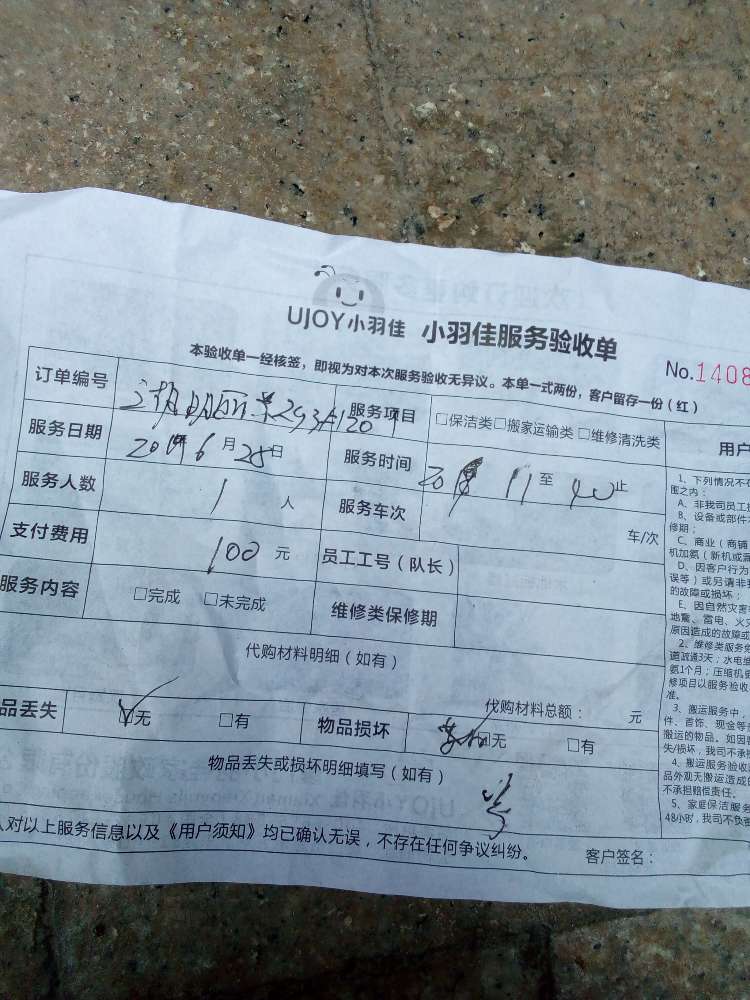 UJOY小羽佳 小羽佳服务验收单
No.1408
本验收单一经核签，即视为对本次服务验收无异议。本单一式两份，客户留存一份（红）
订单编号 293#120 服务项目 □保洁类□搬家运输类□维修清洗类
服务日期 6月28日 服务时间 11 至 40止
服务人数 1 人 服务车次 车/次
支付费用 100元 员工工号（队长）
服务内容 □完成 □未完成 维修类保修期
代购材料明细（如有）
代购材料总额： 元
品丢失 ☑无 □有 物品损坏 无 □有
物品丢失或损坏明细填写（如有）
对以上服务信息以及《用户须知》均已确认无误，不存在任何争议纠纷。 客户签名：
用户
1、下列情况不在
围之内：
A、非我司员工
B、设备或部件
修期；
C、商业（商铺
机加氨（新机或漏
D、因客户行为
误等）或另请非我
的故障或损坏；
E、因自然灾害
地震、雷电、火灾
原因造成的故障或
2、维修类服务免
道疏通3天，水电维
氨1个月；压缩机
修项目以服务验收
准。
3、搬运服务中，
件、首饰、现金等
搬运的物品。如因
失/损坏，我司不承担
4、搬运服务验收
品外观无搬运造成的
不承担赔偿责任。
5、家庭保洁服务
48小时，我司不负责